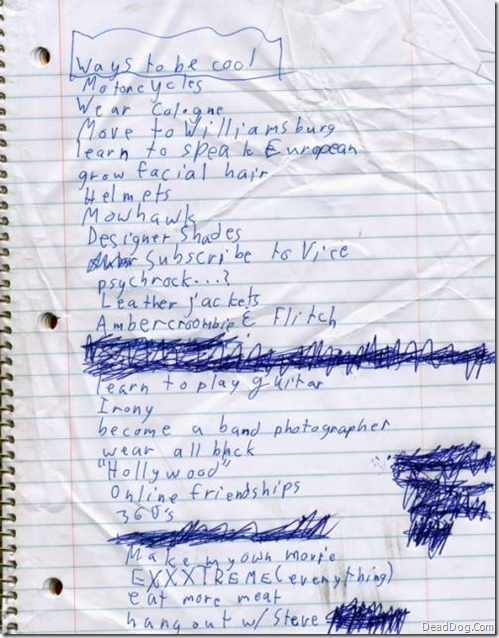 Ways to be cool
Motorcycles
Wear Cologne
Move to Williamsburg
learn to speak European
grow facial hair
Helmets
Mowhawk
Designer Shades
Subscribe to Vice
psychrock...?
Leather jackets
Ambercroombie & Flitch
learn to play guitar
Irony
become a band photographer
wear all black
"Hollywood"
Online friendships
360's
Make my own movie
EXXXTREME (everything)
eat more meat
hang out w/ Steve
DeadDog.Com